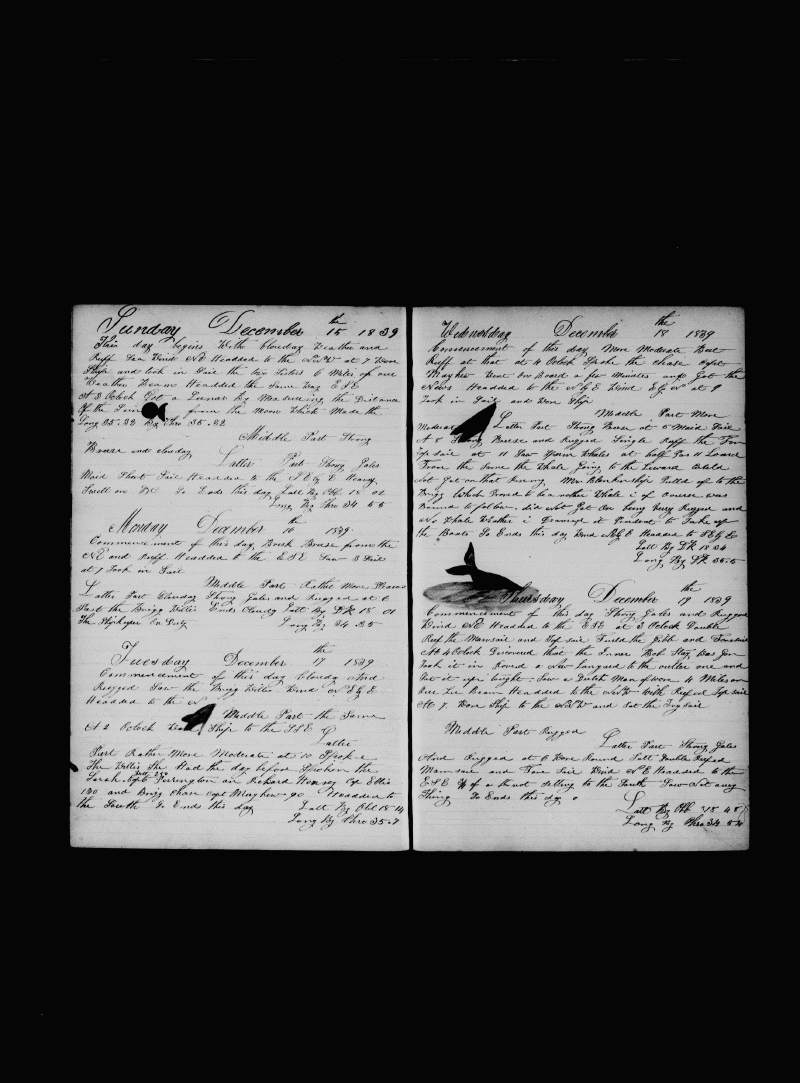 Sunday December 15th 1839
This day begins With Clouday Weather and
Ruff Sea Wind NE Headded to the NNW at 7 Wore
Ship and took in Sail the two Sisters 6 Miles of our
Weather Beam Headded the Same Way ESE
At 3 Oclock Got a Lunar by Measureing the Distance
Of the Sun from the Moon Which Made the
Long 35.32 By Chro 35.22
Middle Part Strong
Breese and clouday
Latter Part Strong Gales
Maid Short Sail Headded to the SE Heavy
Swell on So Ends this day Latt By Ob 18 02
Long By Chro 34 55
Monday December 16th 1839
Commencement of this day Brisk Breese from the
NE and Ruff Headded to the ESE Saw 3 Sail
at 7 Took in Sail
Middle Part Rather More
Latter Part Clouday Strong Gales and Rugged at 6
Past the Brigg Willis Ends Cloudy Latt By DR 18 01
The on Duty Long By 34 35
Tuesday December 17th 1839
Commencement of this day Clouday And
Rugged Saw the Brigg Willis Wind NE&E
Headded to the N
Middle Part the Same
At 2 Oclock Ship to the SSE
Latter
Part Rather More Moderate at 10 Spoke
The Willis She Had the day before Spoken the
Sarah Capt Purrington an Richard Henrey Cpt Ellis
130 and Brigg Chase Cpt Mayhew 90 Headded to
the South So Ends this day Latt By Obs 18.14
Long By Chro 35.7
Wednesday December 18th 1839
Commencement of this day More Moderate But
Ruff at that at 4 Oclock Spoke the Chase Capt
Mayhew Went On Board a few Minutes and Got the
News Headded to the N&E Wind E&N at 9
Took in Sail and Wore Ship
Middle Part More
Moderat Latter Part Strong Breese at 5 Maid Sail
At 8 Strong Breese and Rugged Single Reeff the Fore
top Sail at 11 Saw Sperm Whales at half Past 11 Loward
From the Same the Whale Going to the Leward Could
Not Get on that Runing Mr Blankinship Pulled of to the
Brigg Which Proved to be a nother Whale i of Course was
Bound to follow did Not Get On being Very Rugged and
No Whale Neather i Deamed it Prudent to Take up
the Boats So Ends this day Wind N&E Headded to SE&E
Latt By DR 18 34
Long By DR 35.5
Thursday December 19th 1839
Commencement of this day Strong Gales and Rugged
Wind NE Headded to the ESE at 3 Oclock Double
Reef the Mainsail and Top sail Furld the Gibb and Foresail
At 4 Oclock Discovered that the Inner Bob Stay Was Gon
Took it in Roved a New Lanyard to the outter one and
Set it up tought Saw a Dutch Man of Wore 4 Miles on
Our Lee Beam Headded to the NNW With Reefed Top sail
At 7 Wore Ship to the NNW and Set the
Middle Part Rugged
Latter Part Strong Gales
And Rugged at 6 Wore Round Sett Double Reefed
Mainsail and Fore Sail Wind NE Headded to the
ESE ½ of a Knot setting to the South Saw Not any
Thing So Ends this day
Latt By Ob 18 45
Long By Chro 34 54